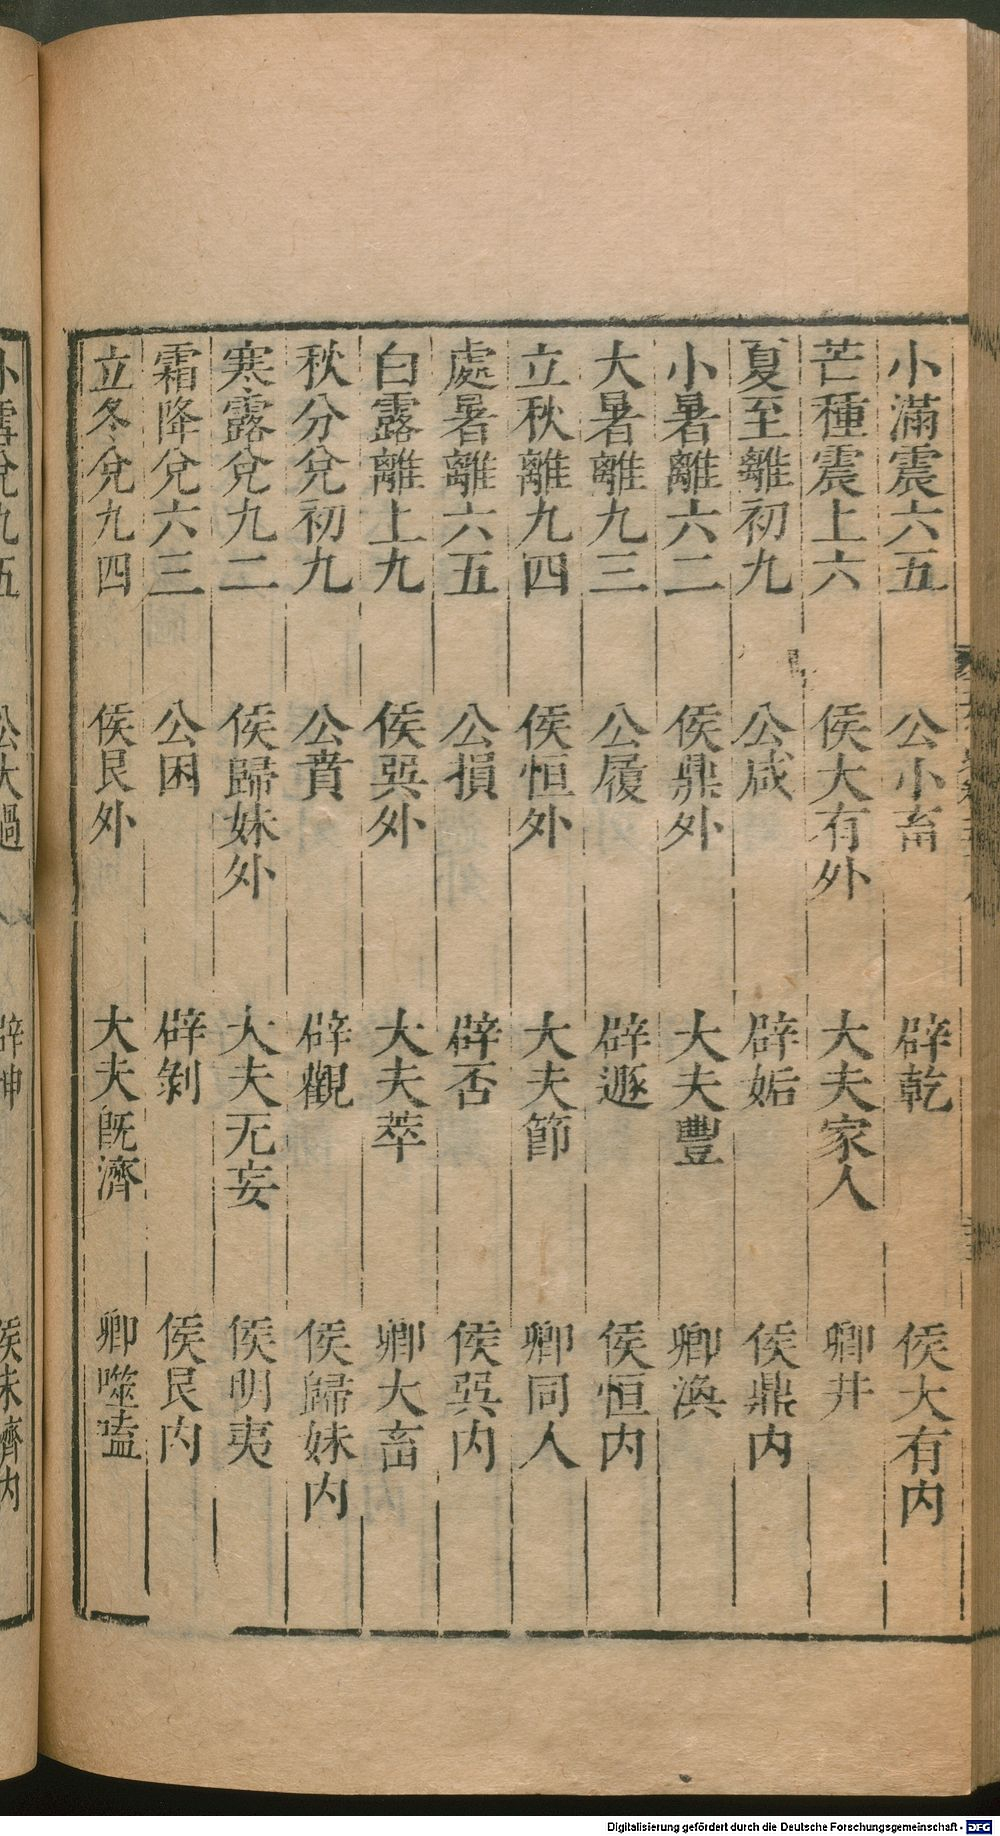 小滿震六五　公小畜　辟乾　侯大有内
芒種震上六　侯大有外　大夫家人　卿井
夏至離初九　公咸　辟姤　侯鼎内
小暑離六二　侯鼎外　大夫豐　卿渙
大暑離九三　公履　辟遯　侯恒内
立秋離九四　侯恒外　大夫節　卿同人
處暑離六五　公損　辟否　侯巽内
白露離上九　侯巽外　大夫萃　卿大畜
秋分兌初九　公賁　辟觀　侯歸妹内
寒露兌九二　侯歸妹外　大夫无妄　侯明夷
霜降兌六三　公困　辟剝　侯艮内
立冬兌九四　侯艮外　大夫旣濟　卿噬嗑
小雪兌九五　公大過　辟坤　侯未濟内
Digitalisierung gefördert durch die Deutsche Forschungsgemeinschaft - DFG